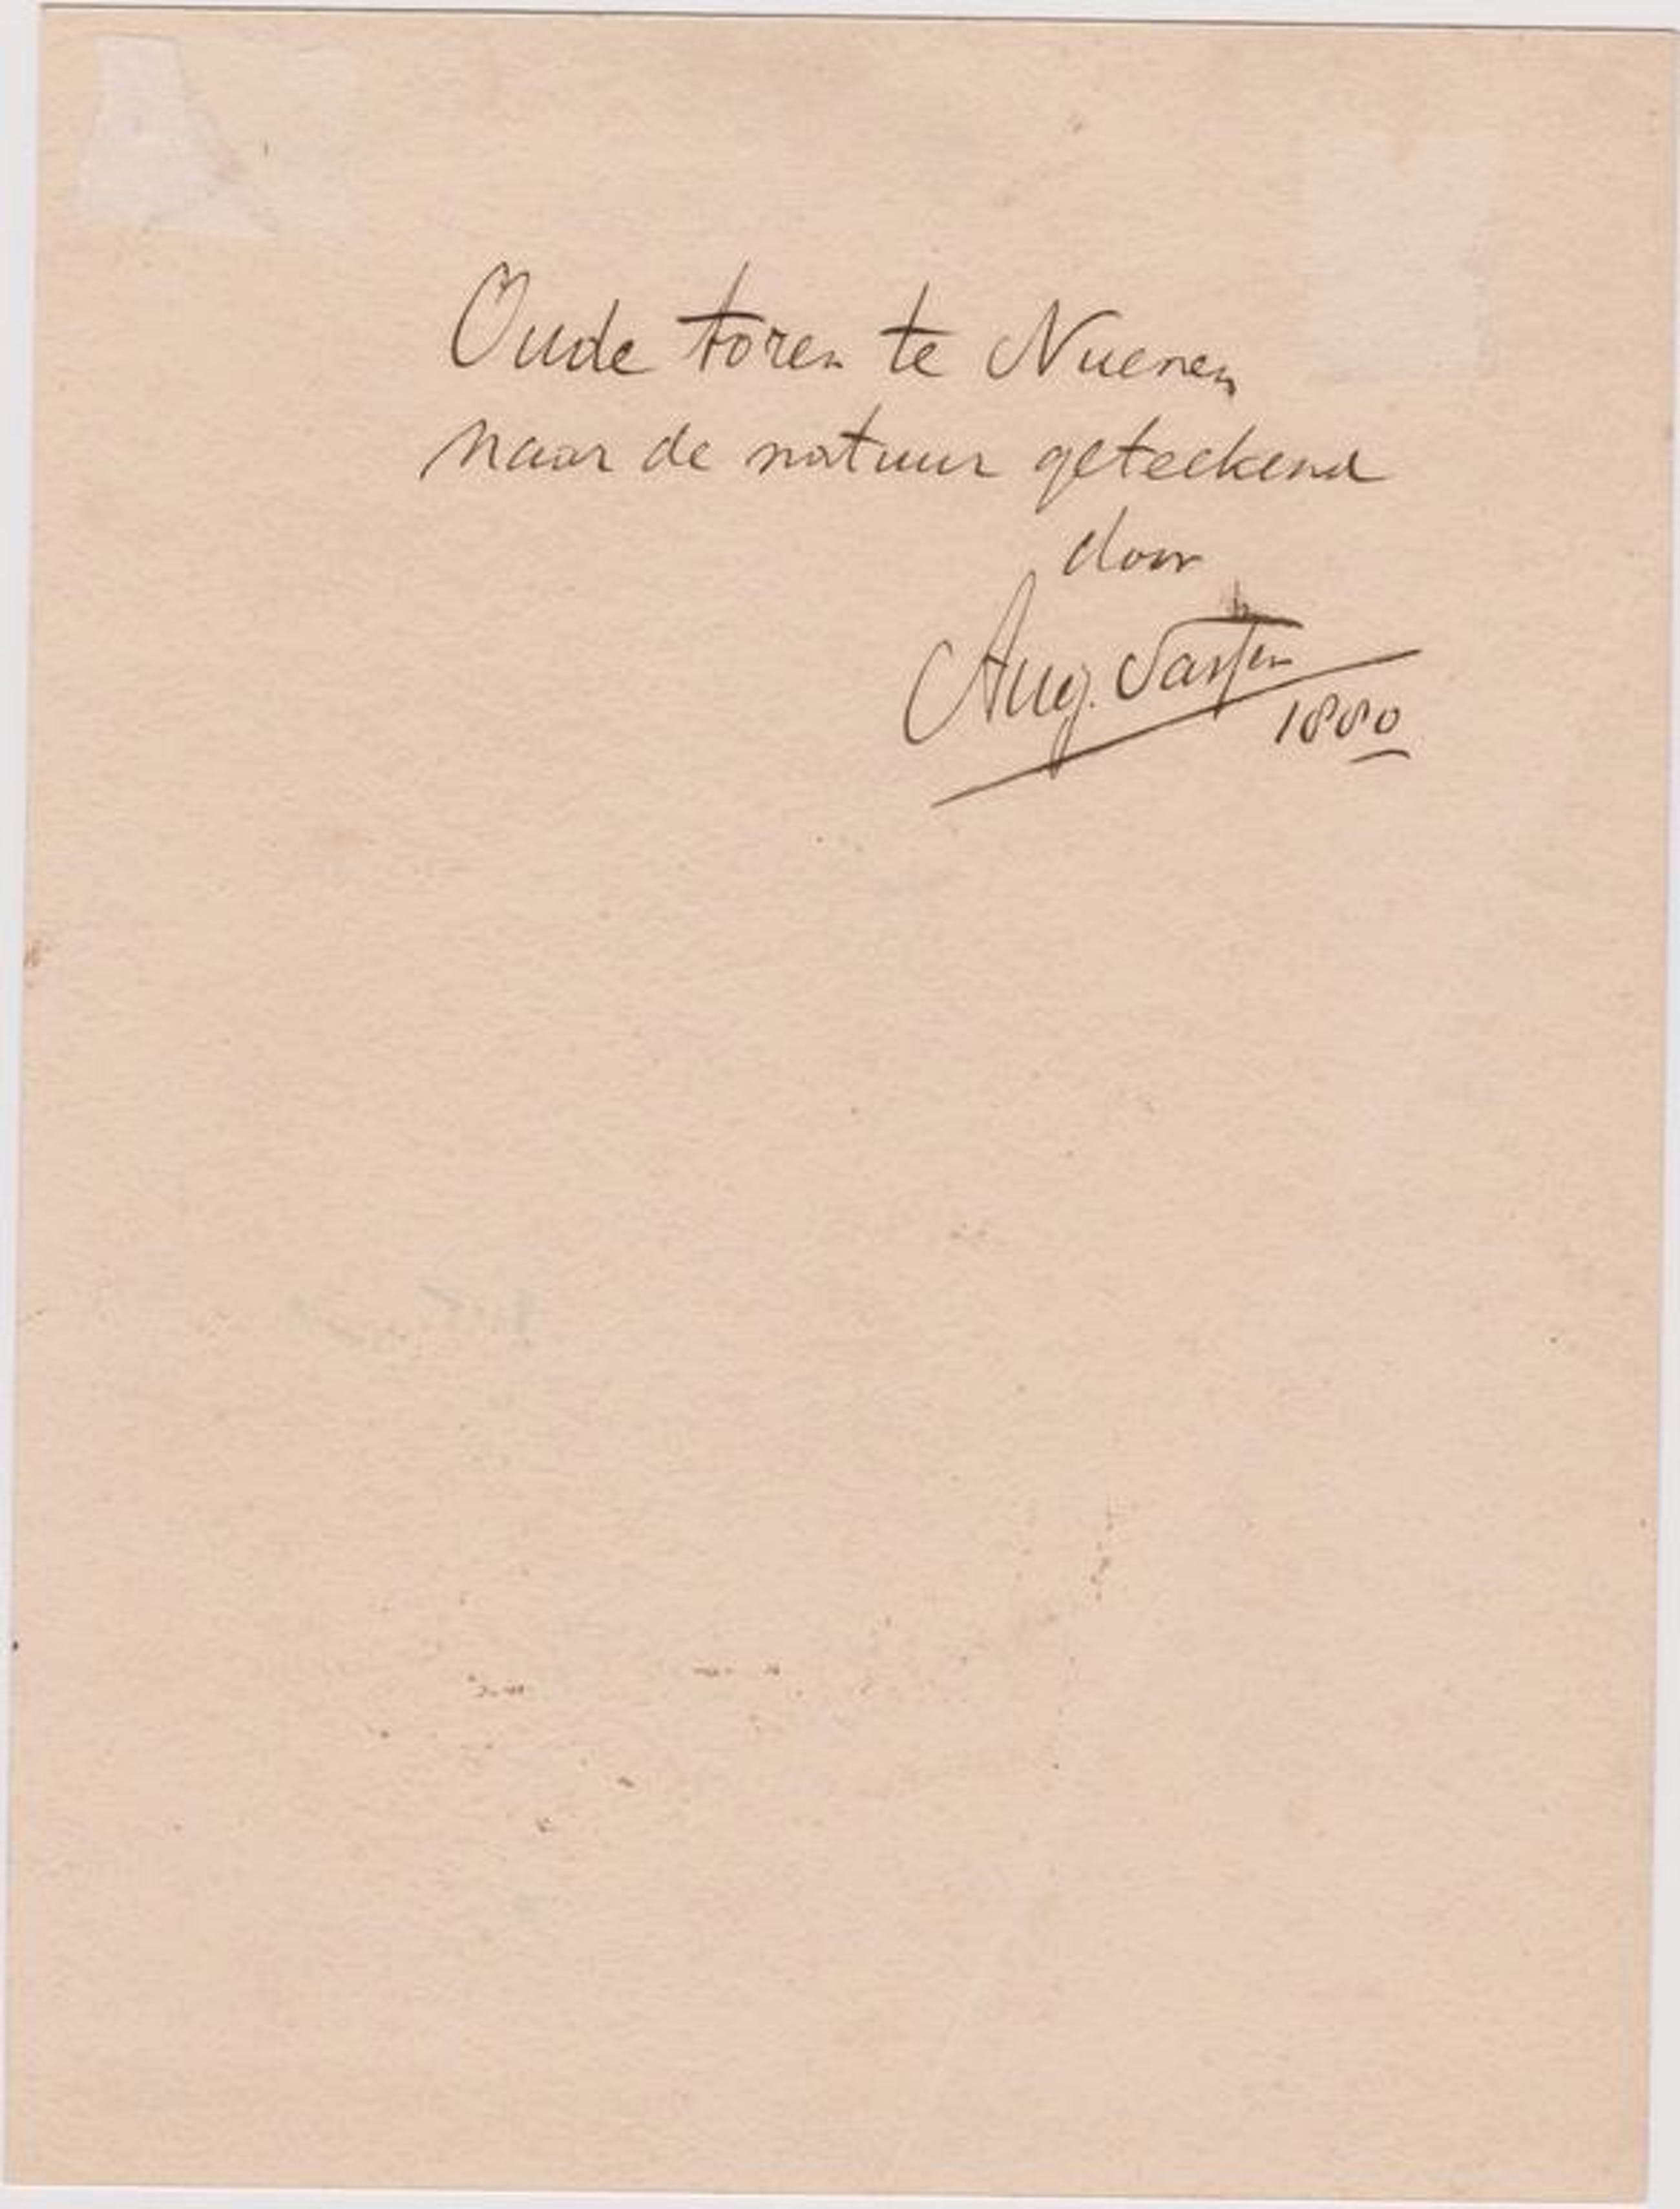 Oude toren te Nuenen
naar de natuur geteekend
door
Aug. Sassen
1880